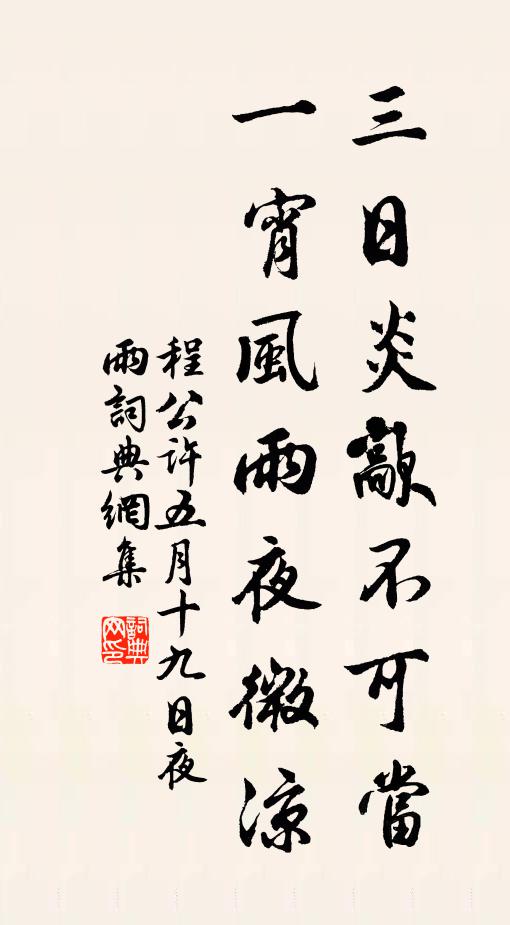 三日炎歊不可當
一宵風雨夜微涼
程公許五月十九日夜
雨詞典網集
詞典網印